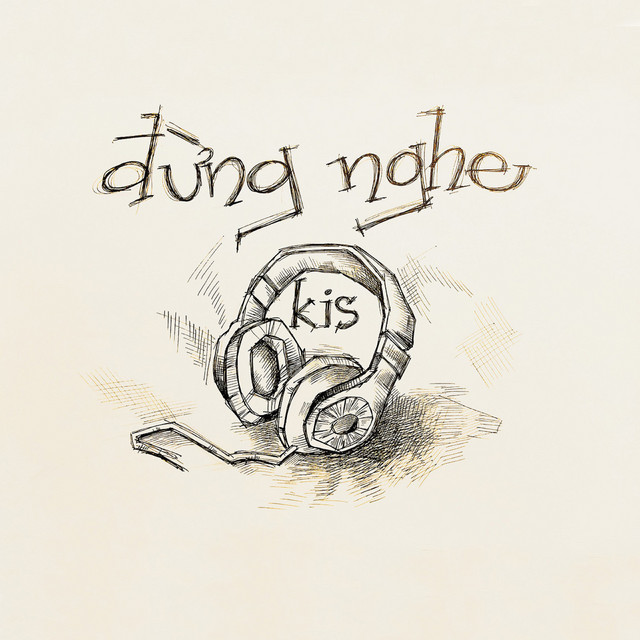 đừng nghe
kis